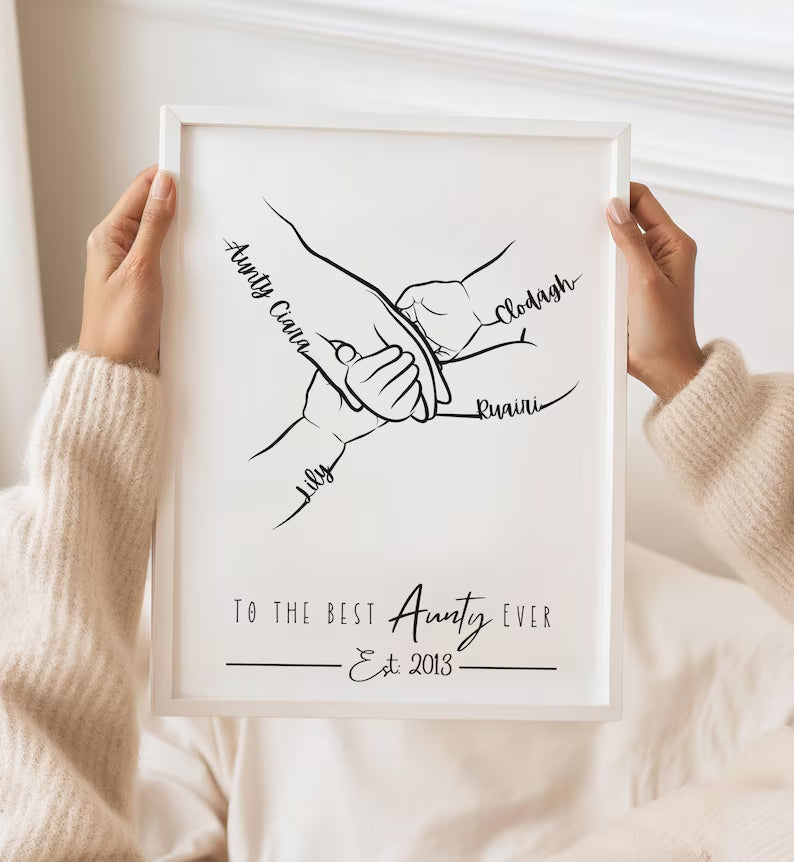 Aunty Ciara
Clodagh
Ruairi
Lily
TO THE BEST Aunty EVER
Est. 2013